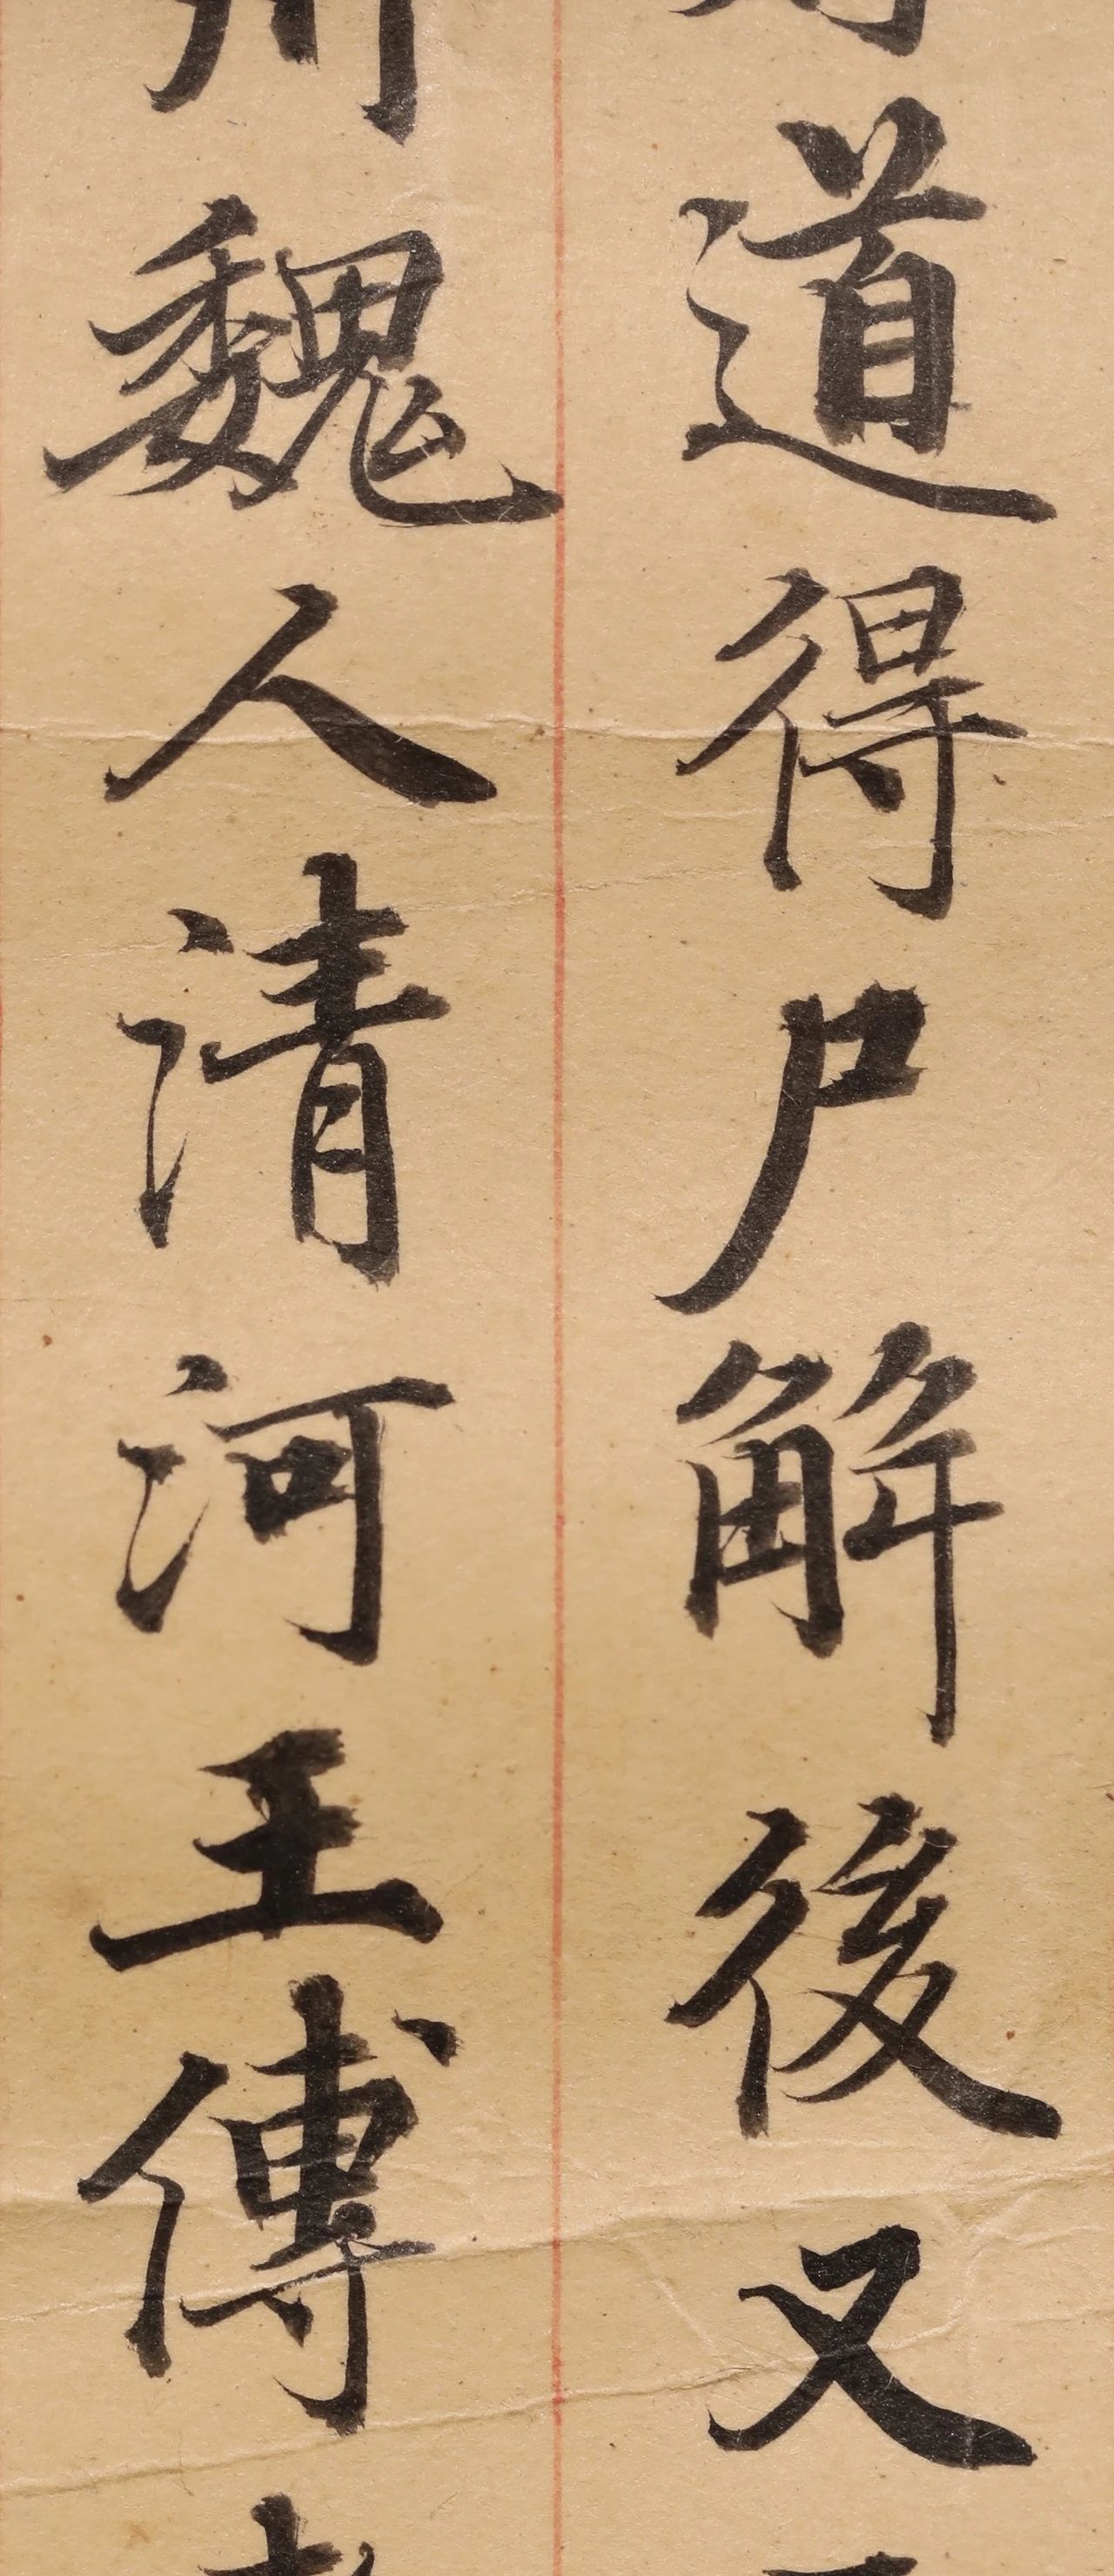 道得尸解後又
州魏人清河王傅